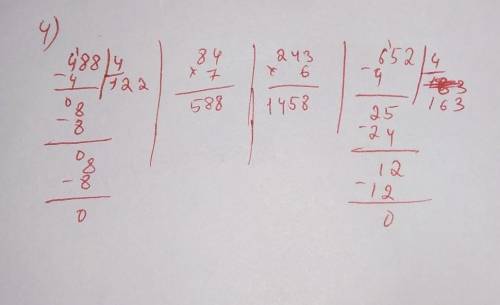 4)
488 | 4
- 4 122
08
- 8
08
- 8
0
84
× 7
588
243
× 6
1458
652 | 4
- 4 163
25
- 24
12
- 12
0